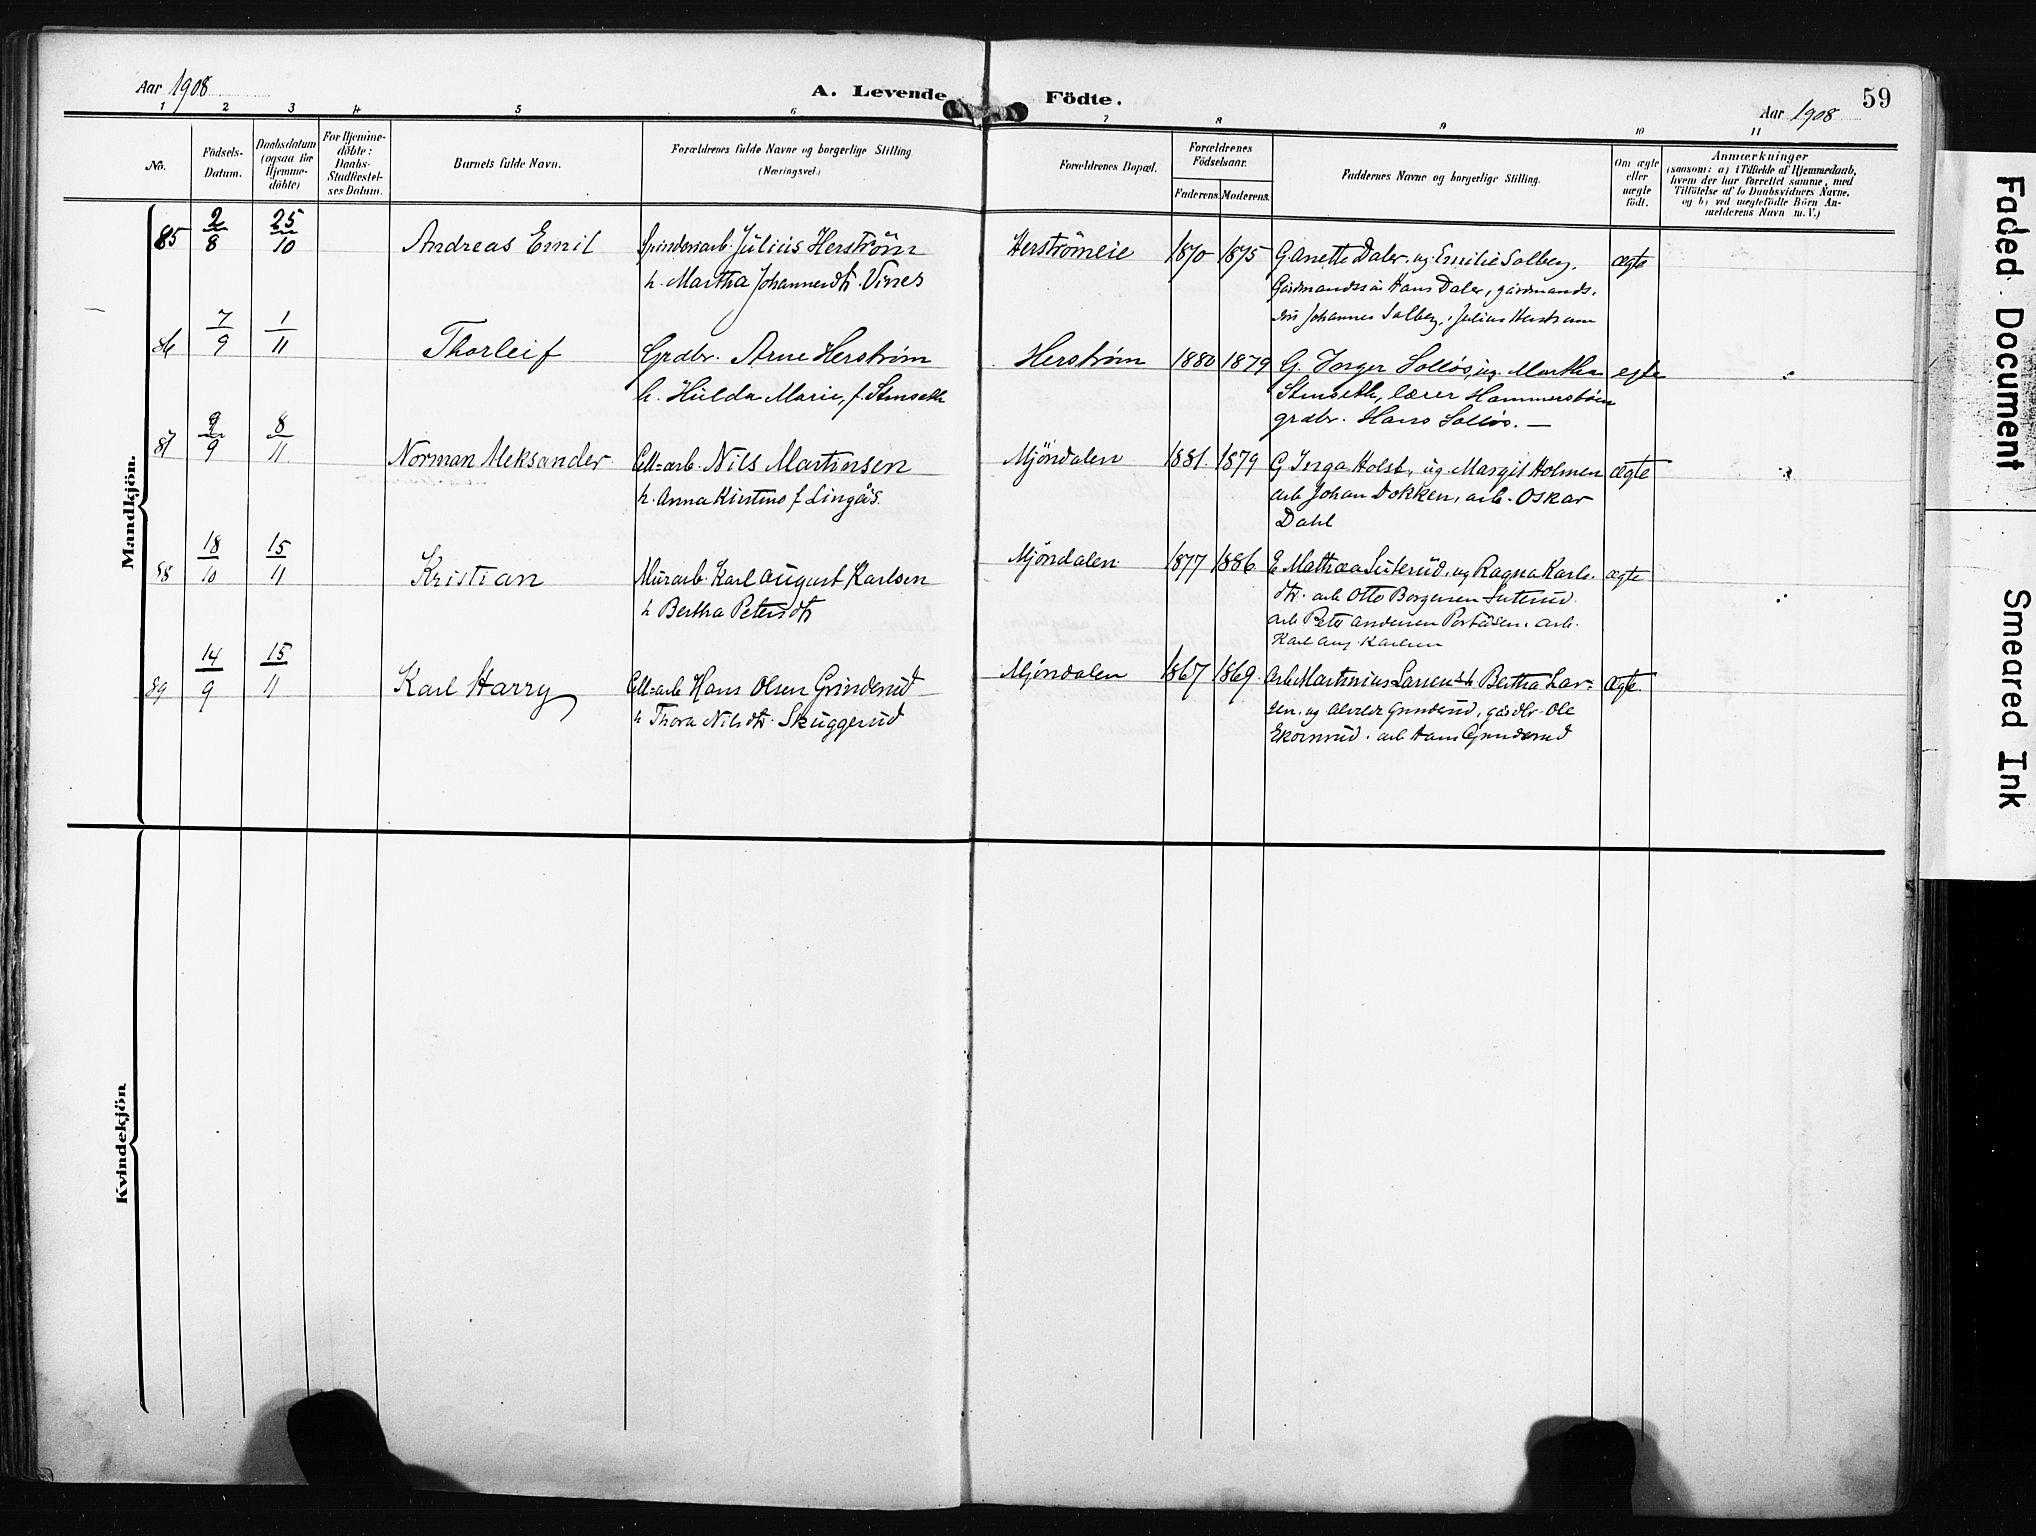 Aar 1908
A. Levende Födte.
Aar 1908
59
1 2 3 4 5 6 7 8 9 10 11
No.
Födsels-
Datum.
Daabsdatum
(ogsaa for
Hjemme-
döbte)
For Hjemme-
döbte:
Daabs-
Stadfæstel-
ses Datum.
Barnets fulde Navn.
Forældrenes fulde Navne og borgerlige Stilling
(Næringsvei.)
Forældrenes Bopæl.
Forældrenes
Födselsaar.
Faderens Moderens.
Faddernes Navne og borgerlige Stilling.
Om ægte
eller
uægte
födt.
Anmærkninger
(saasom: a) i Tilfælde af Hjemmedaab,
hvem der har forrettet samme, med
Tilföielse af to Daabsvidners Navne,
og b) ved uegtefödte Börn An-
melderens Navn m. V.)
Mandkjön.
85 2/8 25/10 Andreas Emil
Spinderiarb. Julius Herström
h. Martha Johannesdtr. Vines
Herströmeie 1870 1875
G. Anette Daler og Emilie Solberg,
Gårdmandssön Hans Daler, gårdmands.
sön Johannes Solberg, Julius Herstrøm
ægte
86 7/9 1/11 Thorleif
Grdbr. Arne Herstrøm
h. Hulda Marie, f. Stenseth
Herstrøm 1880 1879
G. Inger Solløs, ug. Martha
Stenseth, lærer Hammerstrøm
grdbr. Hans Solløs. —
egte
87 9/9 8/11 Norman Aleksander
Cell=arb. Nils Martinsen
h. Anna Kirstine f. Lingås.
Mjöndalen 1881 1879
G Inga Holst, ug Margit Holmen
arb Johan Dokken, arb. Oskar
Dahl
ægte
88 18/10 15/11 Kristian
Murarb. Karl August Karlsen
h Bertha Petersdtr
Mjöndalen 1877 1886
E Mathea Suterud, ug Ragna Karls.
dtr. arb Otto Borgersen Suterud
arb Peter Andersen Portåsen, arb.
Karl Aug. Karlsen
ægte
89 14/9 15/11 Karl Harry
Cell=arb Hans Olsen Grinderud
h Thora Nilsdtr. Skuggerud
Mjöndalen 1867 1869
Arb Martinius Larsen & h Bertha Lar-
sen. ug Alvilde Grinderud, gårdbr. Ole
Ekornrud. arb Hans Grinderud
ægte.
Kvindekjön
Faded Document
Smeared Ink